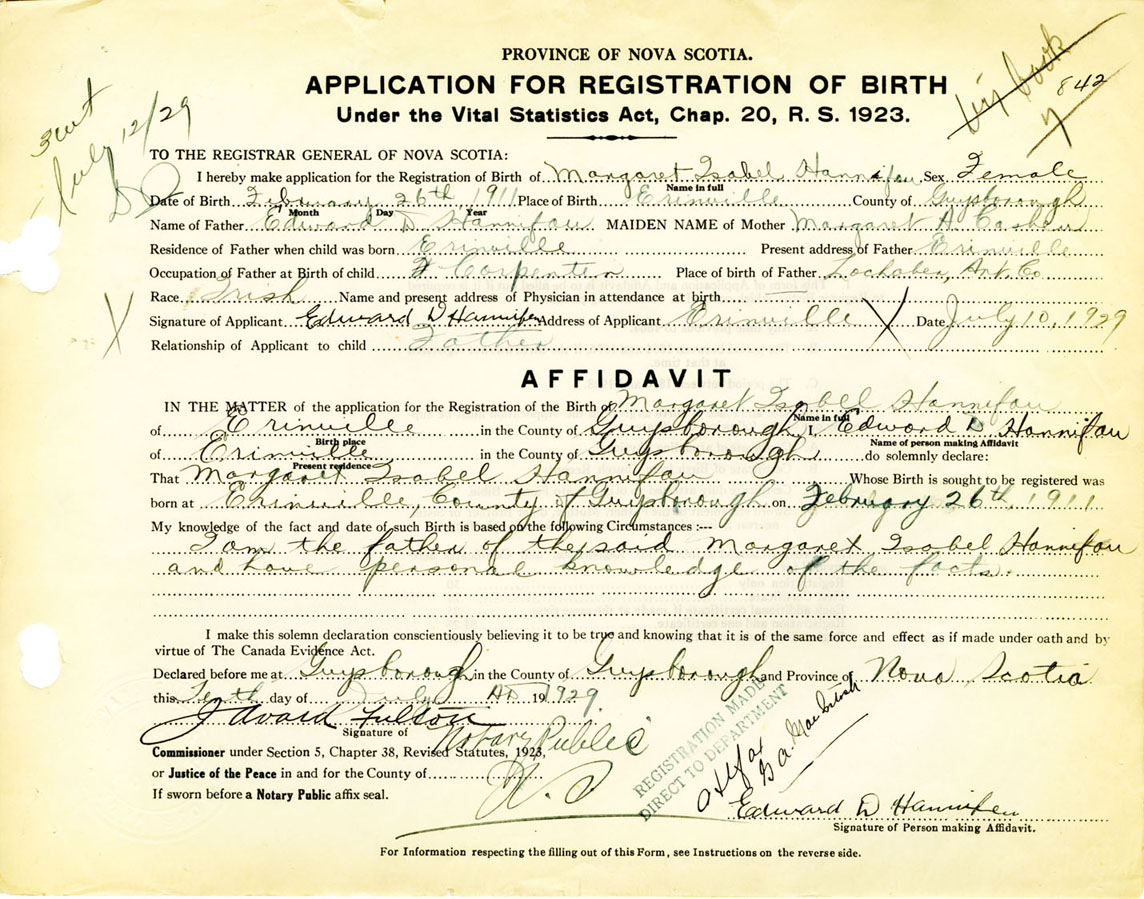 PROVINCE OF NOVA SCOTIA.
APPLICATION FOR REGISTRATION OF BIRTH
Under the Vital Statistics Act, Chap. 20, R. S. 1923.
842
July 12/29
TO THE REGISTRAR GENERAL OF NOVA SCOTIA:
I hereby make application for the Registration of Birth of Margaret Isabel Hannifan Sex Female
Name in full
Date of Birth February 26th, 1911 Place of Birth Erinville County of Guysborough
Month Day Year
Name of Father Edward D Hannifan MAIDEN NAME of Mother Margaret A.
Residence of Father when child was born Erinville Present address of Father Erinville
Occupation of Father at Birth of child Carpenter Place of birth of Father Lochaber, Ant. Co
Race. Irish Name and present address of Physician in attendance at birth
Signature of Applicant Edward D Hannifen Address of Applicant Erinville X Date July 10, 1929
X
Relationship of Applicant to child Father
AFFIDAVIT
IN THE MATTER of the application for the Registration of the Birth of Margaret Isabel Hannifan
Name in full
of Erinville in the County of Guysborough I, Edward D. Hannifan
Birth place Name of person making Affidavit
of Erinville in the County of Guysborough do solemnly declare:
Present residence
That Margaret Isabel Hannifan Whose Birth is sought to be registered was
born at Erinville, County of Guysborough on February 26th, 1911
My knowledge of the fact and date of such Birth is based on the following Circumstances :---
I am the father of the said Margaret Isabel Hannifan
and have personal knowledge of the facts.
I make this solemn declaration conscientiously believing it to be true and knowing that it is of the same force and effect as if made under oath and by
virtue of The Canada Evidence Act.
Declared before me at Guysborough in the County of Guysborough and Province of Nova Scotia
this Tenth day of July AD. 19 1929.
Fulton
Signature of Notary Public
Commissioner under Section 5, Chapter 38, Revised Statutes, 1923,
or Justice of the Peace in and for the County of
If sworn before a Notary Public affix seal.
REGISTRATION MADE
DIRECT TO DEPARTMENT
Edward D Hannifen
Signature of Person making Affidavit.
For Information respecting the filling out of this Form, see Instructions on the reverse side.